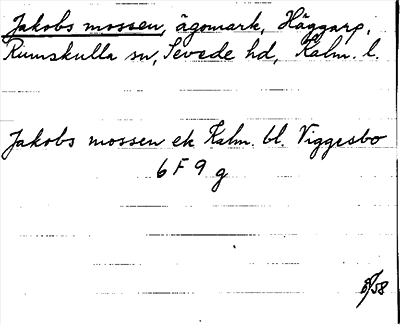 Jakobs mossen, ägomark, Häggarp,
Rumskulla sn, Sevede hd, Kalm. l.
Jakobs mossen ek Kalm. bl. Viggesbo
6 F 9 g